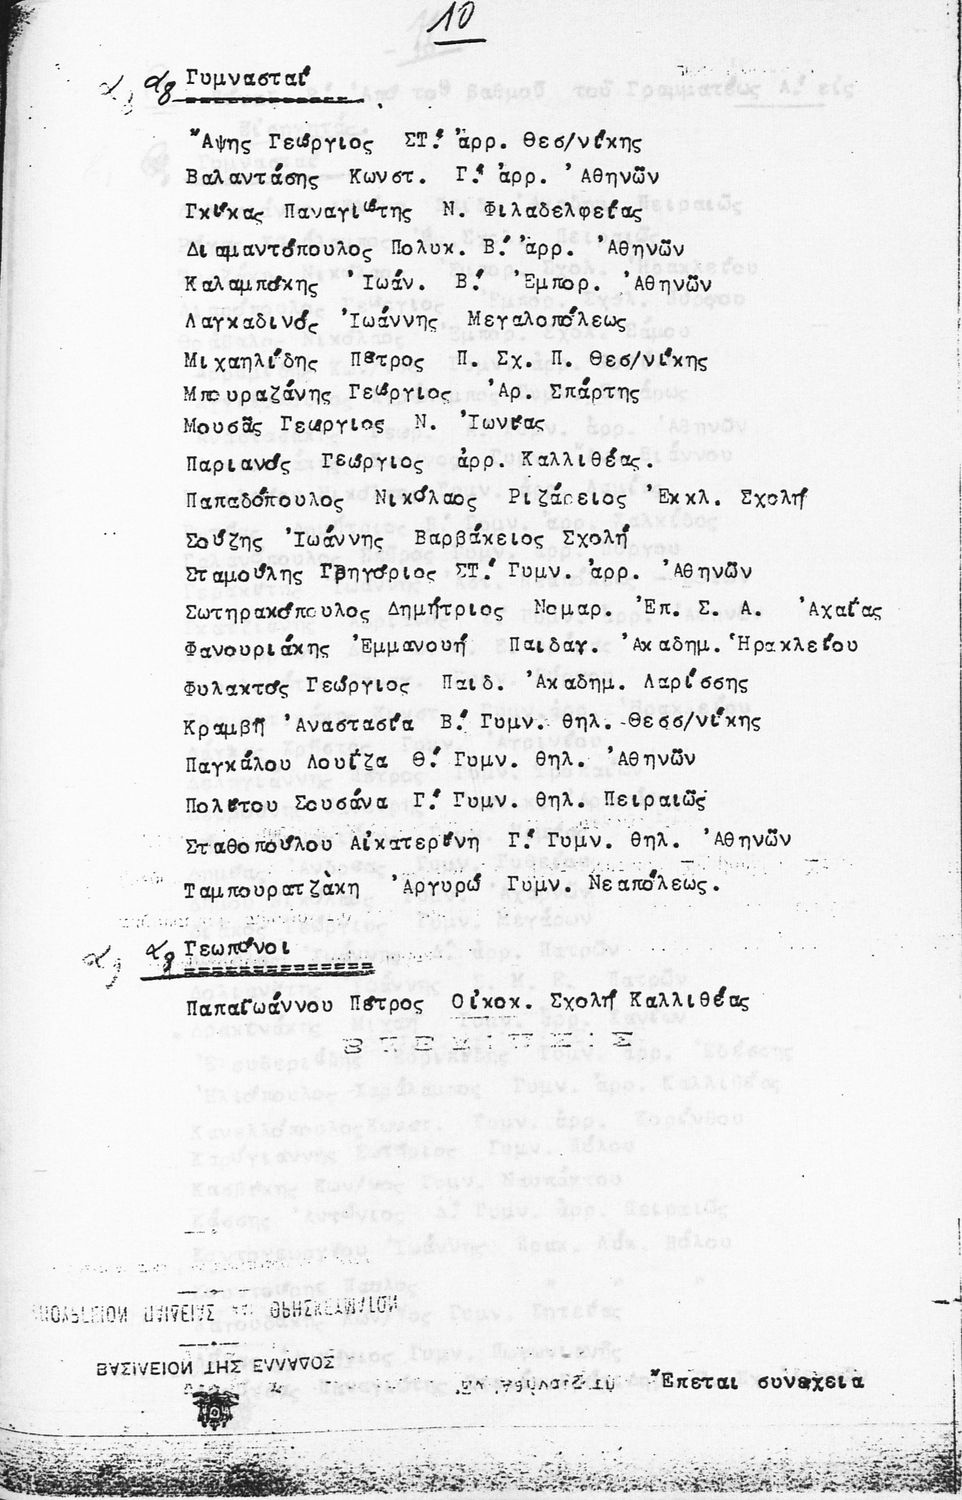 10
Γυμνασταί
Ἄψης Γεώργιος ΣΤ.' ἀρρ. Θεσ/νίκης
Βαλαντάσης Κωνστ. Γ.' ἀρρ. Ἀθηνῶν
Γκίκας Παναγιώτης Ν. Φιλαδελφείας
Διαμαντόπουλος Πολυκ. Β.' ἀρρ. Ἀθηνῶν
Καλαμπόκης Ἰωάν. Β.' Ἐμπορ. Ἀθηνῶν
Λαγκαδινός Ἰωάννης Μεγαλοπόλεως
Μιχαηλίδης Πέτρος Π. Σχ. Π. Θεσ/νίκης
Μπουραζάνης Γεώργιος Ἀρ. Σπάρτης
Μουσᾶς Γεώργιος Ν. Ἰωνίας
Παριανός Γεώργιος ἀρρ. Καλλιθέας.
Παπαδόπουλος Νικόλαος Ριζάρειος Ἐκκλ. Σχολή
Σούζης Ἰωάννης Βαρβάκειος Σχολή
Σταμούλης Γρηγόριος ΣΤ.' Γυμν. ἀρρ. Ἀθηνῶν
Σωτηρακόπουλος Δημήτριος Νομαρ. Ἐπ. Σ. Α. Ἀχαΐας
Φανουριάκης Ἐμμανουήλ Παιδαγ. Ἀκαδημ. Ἡρακλείου
Φυλακτός Γεώργιος Παιδ. Ἀκαδημ. Λαρίσσης
Κραμβῆ Ἀναστασία Β.' Γυμν. θηλ. Θεσσ/νίκης
Παγκάλου Λουΐζα Θ.' Γυμν. θηλ. Ἀθηνῶν
Πολίτου Σουσάνα Γ.' Γυμν. θηλ. Πειραιῶς
Σταθοπούλου Αἰκατερίνη Γ.' Γυμν. θηλ. Ἀθηνῶν
Ταμπουρατζάκη Ἀργυρώ Γυμν. Νεαπόλεως.
Γεωπόνοι
Παπαϊωάννου Πέτρος Οἰκοκ. Σχολή Καλλιθέας
ΒΑΣΙΛΕΙΟΝ ΤΗΣ ΕΛΛΑΔΟΣ
Ἔπεται συνέχεια